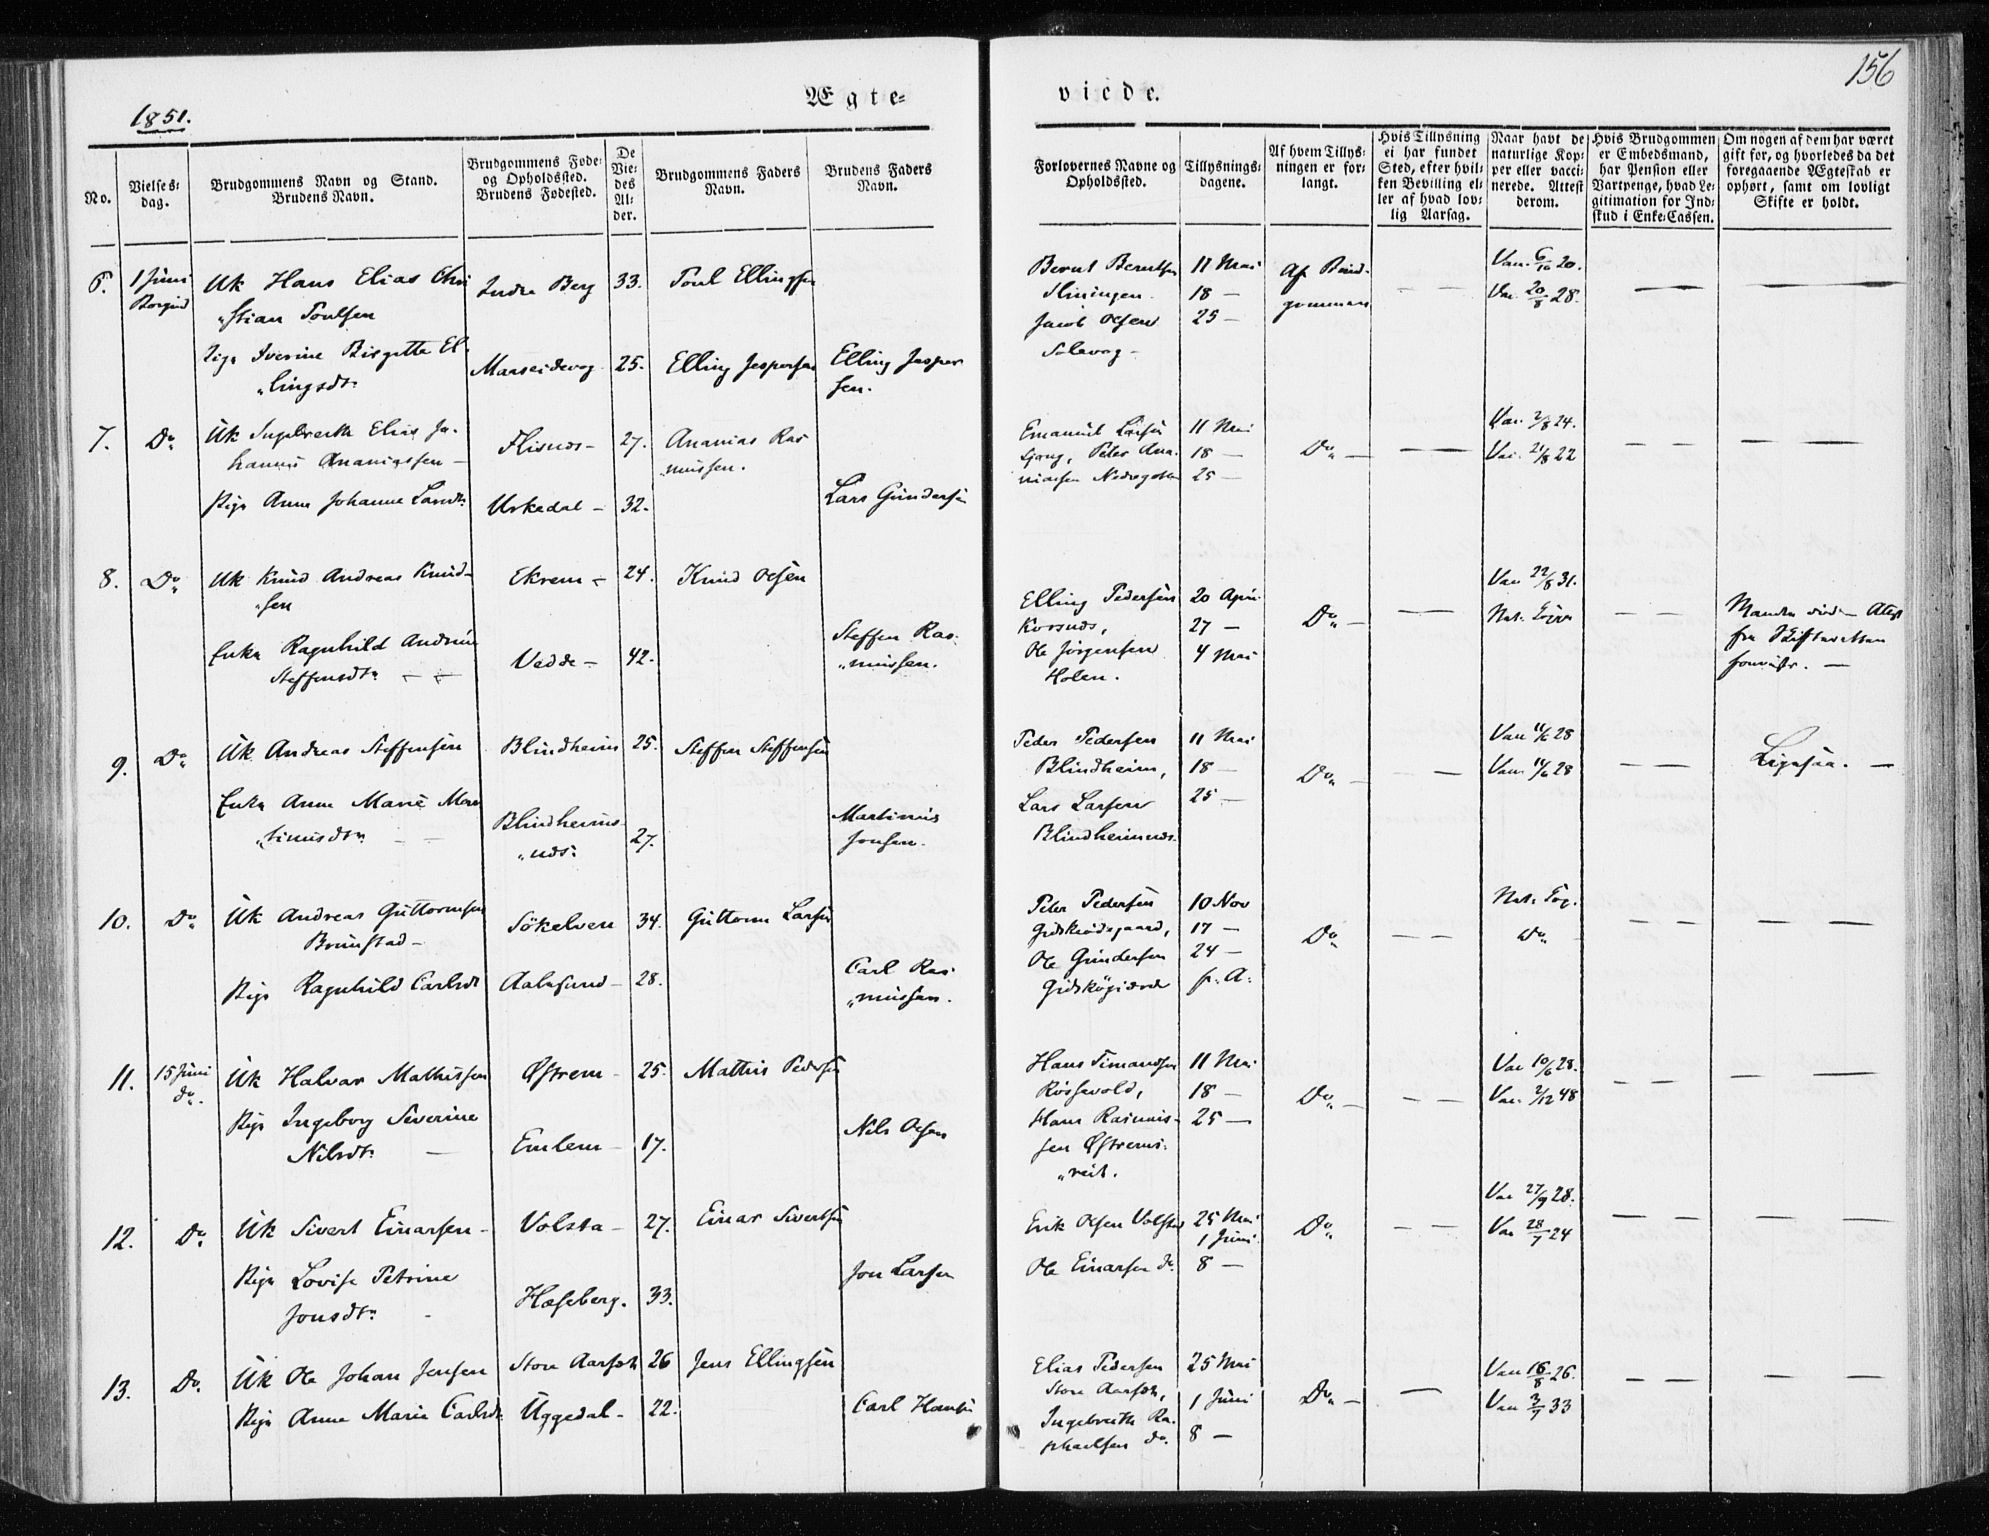 156
1851.
Ægte-
viede.
No.
Vielses-
dag.
Brudgommens Navn og Stand.
Brudens Navn.
Brudgommens Føde-
og Opholdssted.
Brudens Fødested.
De
Vie-
des
Al-
der.
Brudgommens Faders
Navn.
Brudens Faders
Navn.
Forlovernes Navne og
Opholdssted.
Tillysnings-
dagene.
Af hvem Tillys-
ningen er for-
langt.
Hvis Tillysning
ei har fundet
Sted, efter hvil-
ken Bevilling el-
ler af hvad lov-
lig Aarsag.
Naar havt de
naturlige Kop-
per eller vacci-
nerede. Attest
derom.
Hvis Brudgommen
er Embedsmand,
har Pension eller
Vartpenge, hvad Le-
gitimation for Ind-
skud i Enke-Cassen.
Om nogen af dem har været
gift før, og hvorledes da det
foregaaende Ægteskab er
ophørt, samt om lovligt
Skifte er holdt.
6.
1 Juni
Borgund
Uk Hans Elias Chri
„stian Poulsen
Indre Berg
33.
Poul Ellingsen
Pige Iverine Birgitte El-
„lingsdtr
25.
Elling Jespersen
Elling Jesper
sen.
Bernt Berntsen
Jacob Olsen
Solevog -
11 Mai
18 —
25 —
Af Brud-
gommen
Vac. 6/10 20.
Vac. 20/8 28.
7.
Do
Uk Ingebreth Elias Jo-
hannes Ananiassen —
Flisnes -
27.
Ananias Ras
mussen.
Pige Anne Johanne Larsdtr
Urkedal -
32.
Lars Gundersen
Emanuel Larsen
Peter Ana-
niassen
11 Mai
18 —
25 —
Do —
Vac. 2/8 24.
Vac. 21/8 22
8.
Do
Uk Knud Andreas Knud-
„sen
Ekrem -
24.
Knud Olsen
Enke Ragnhild Andrine
Steffensdtr
Vedde -
42.
Steffen Ras-
„mussen.
Elling Pedersen
Korsnes,
Ole Jørgensen
Holen.
20 April
27 —
4 Mai
Do —
Vac 22/8 31.
Nat. Kopper
Manden død — Attest
fra Skifteretten
9.
Do
Uk Andreas Steffensen
Blindheim
25.
Steffen Steffensen
Enke Anne Marie Mar
„tinusdtr
Blindheims-
„nes.
27.
Martinus
Jonsen.
Peder Pedersen
Blindheim,
Lars Larsen
Blindheimsnes.
11 Mai
18 —
25 —
Do —
Vac 11/6 28
Vac. 11/6 28
Ligesaa. —
10.
Do
Uk Andreas Guttormsen
Brunstad -
Sökelven
34.
Guttorm Larsen
Pige Ragnhild Carlsdtr
Aalesund -
28.
Carl Ras
„mussen.
Peter Pedersen
Ole Gundersen
10 Nov
17 —
24 —
f. A.
Do
Nat. Kop.
Do
11.
15 Juni
do.
Uk Halvar Mathissen
Østrem -
25.
Mathis Pedersen
Pige Ingeborg Severine
Nilsdtr
Emlem -
17.
Nils Olsen
Hans Timandsen
Røssevold,
Hans Rasmus-
sen Østrems-
„reit.
11 Mai
18 —
25 —
Do —
Vac 10/6 28.
Vac. 2/12 48
12.
Do
Uk Sivert Einarsen -
Volsta -
27.
Einar Sivertsen
Pige Lovise Petrine
Jonsdtr
Hæseberg.
33.
Jon Larsen
Erik Olsen Volstad
Ole Einarsen do.
25 Mai
1 Juni.
8 —
Do
Vac 27/9 28.
Vac 28/7 24
13.
Do.
Uk Ole Johan Jensen
Store Aarseth
26
Jens Ellingsen
Pige Anne Marie Carlsdtr
Uggedal -
22.
Carl Hansen
Elias Pedersen
Store Aarseth,
Ingebreth Ra-
phaelsen do.
25 Mai
1 Juni
8 —
Do —
Vac 16/8 26.
Vac 3/7 33